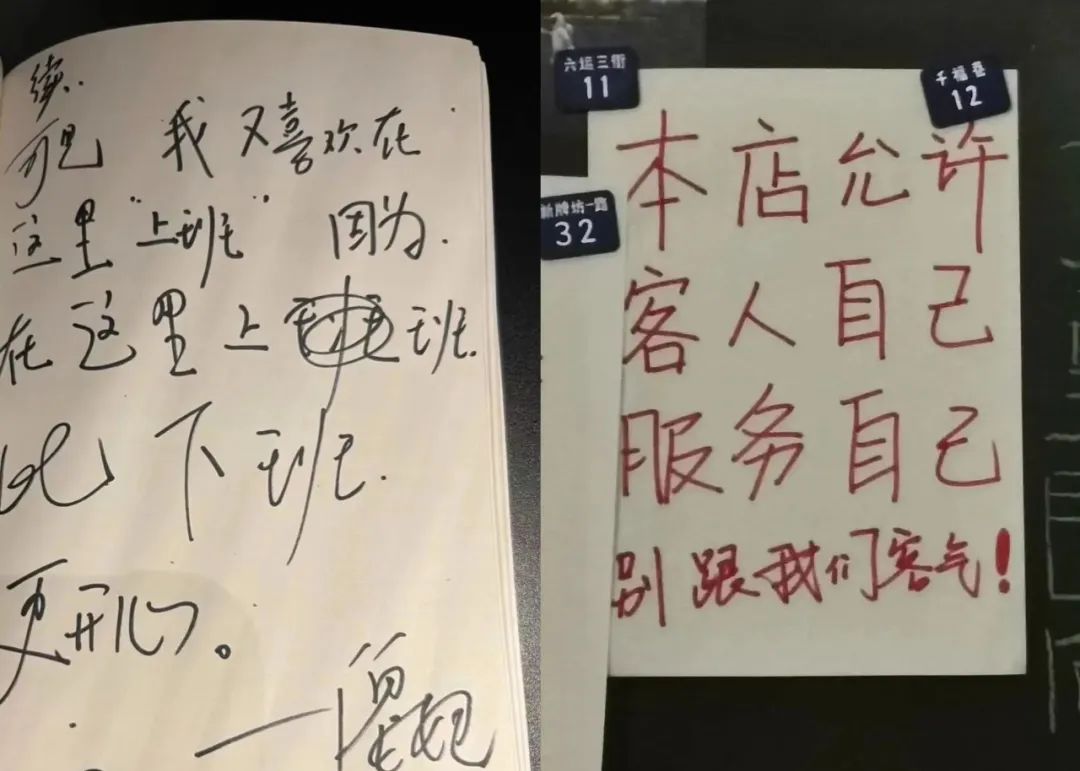 续.
可见 我又喜欢在
这里"上班" 因为.
在这里上班
比下班.
更开心。
六运三街
11
千福巷
12
新牌坊一路
32
本店允许
客人自己
服务自己
别跟我们客气!